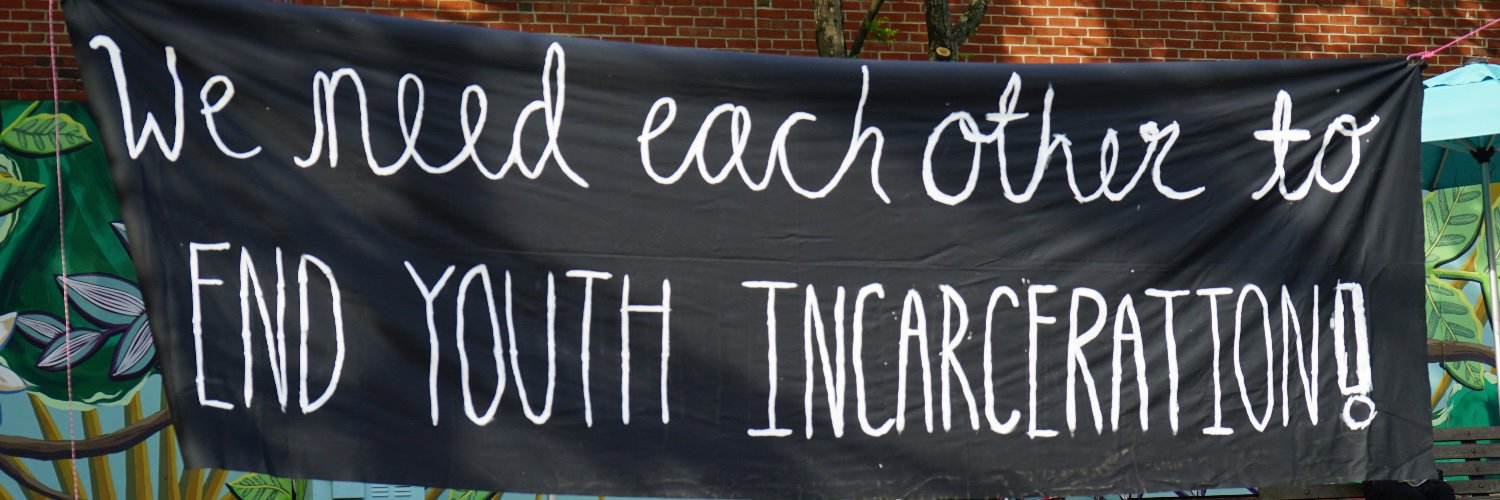 We need each other to
END YOUTH INCARCERATION!